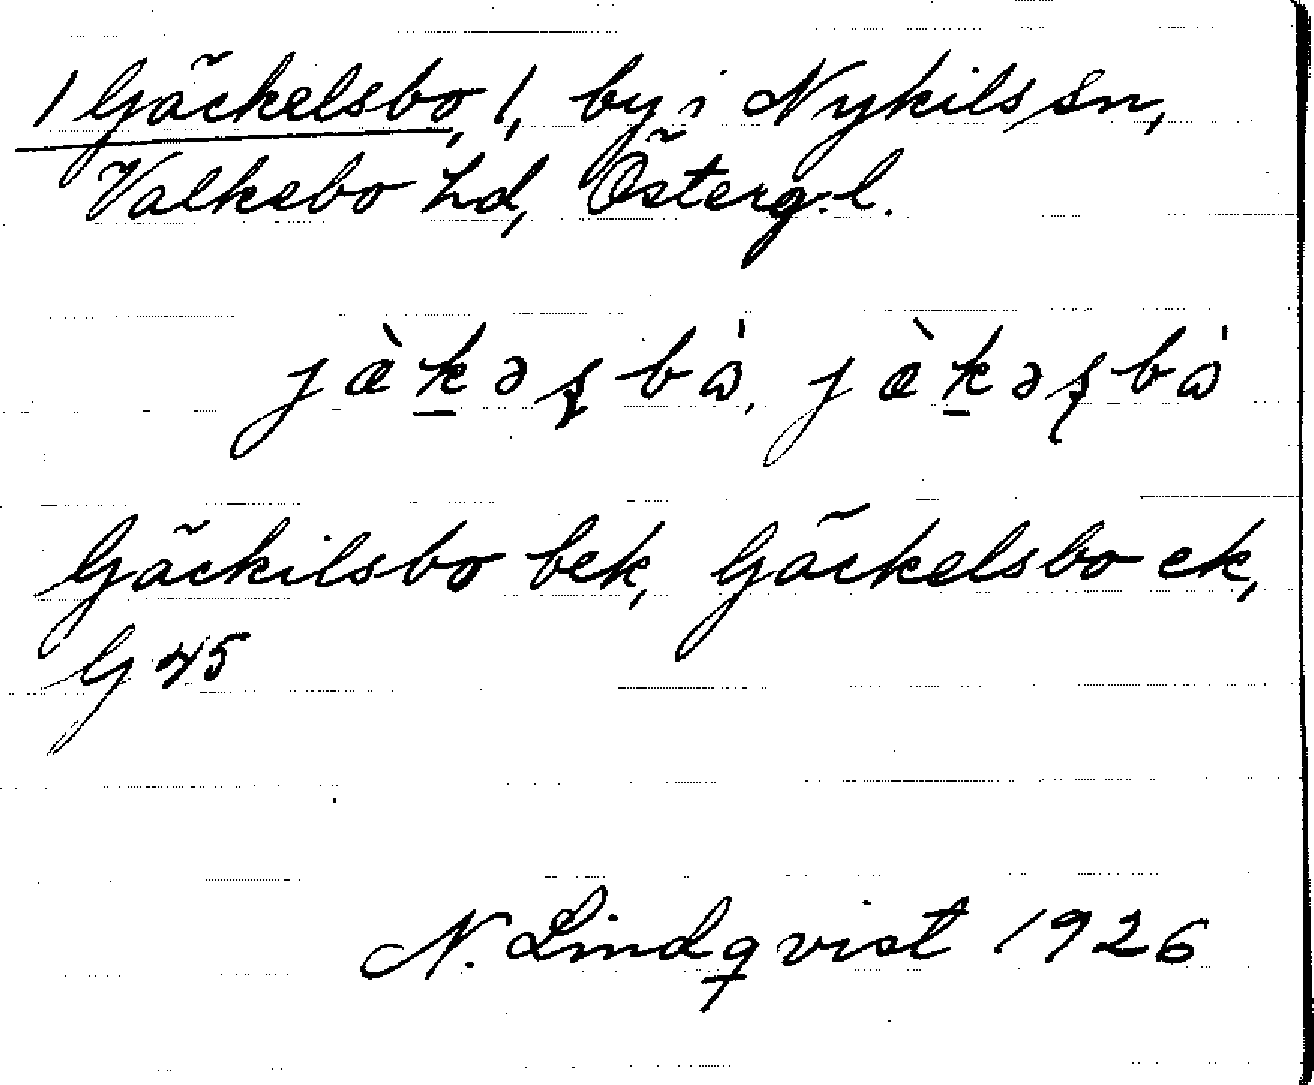 1 Gäckelsbo, 1, by i Nykils sn,
Valkebo hd, Österg.l.
jæ̀ḵəʂbὼ, jæ̀ḵəʂbὼ
Gäckilsbo bek, Gäckelsbo ek,
G 45
N. Lindqvist 1926